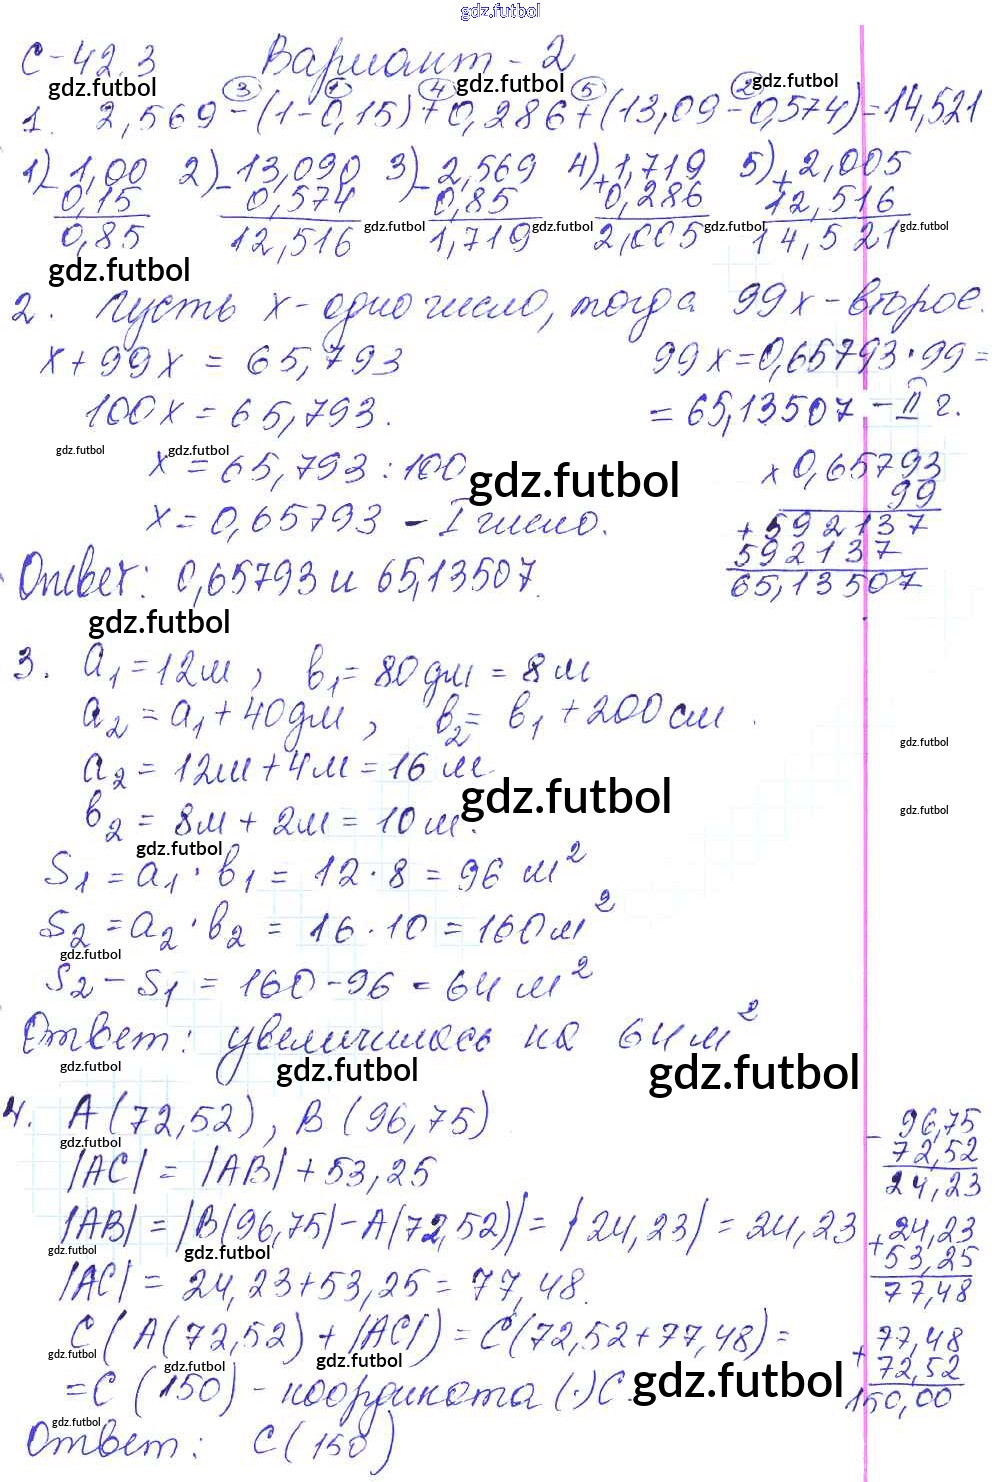 gdz.futbol
С-42.3 Вариант - 2
gdz.futbol gdz.futbol gdz.futbol
③ ① ④ ⑤ ②
1. 2,569 - (1 - 0,15) + 0,286 + (13,09 - 0,574) = 14,521
1) - 1,00 2) - 13,090 3) - 2,569 4) + 1,719 5) + 2,005
0,15 0,574 0,85 0,286 12,516
0,85 12,516 gdz.futbol 1,719 gdz.futbol 2,005 gdz.futbol 14,521 gdz.futbol
gdz.futbol
2. Пусть x - одно число, тогда 99x - второе.
x + 99x = 65,793 99x = 0,65793 · 99 =
100x = 65,793. = 65,13507 - II г.
gdz.futbol gdz.futbol
x = 65,793 : 100 x 0,65793
gdz.futbol 99
x = 0,65793 - I число. + 592137
592137
Ответ: 0,65793 и 65,13507. 65,13507
gdz.futbol
3. a1 = 12м, b1 = 80дм = 8м
a2 = a1 + 40дм, b2 = b1 + 200см.
gdz.futbol
a2 = 12м + 4м = 16м
gdz.futbol gdz.futbol
b2 = 8м + 2м = 10м.
gdz.futbol
S1 = a1 · b1 = 12 · 8 = 96 м²
S2 = a2 · b2 = 16 · 10 = 160м²
gdz.futbol
S2 - S1 = 160 - 96 = 64 м²
Ответ: увеличилась на 64м²
gdz.futbol gdz.futbol gdz.futbol
4. A(72,52), B(96,75) - 96,75
gdz.futbol 72,52
|AC| = |AB| + 53,25 24,23
|AB| = |B(96,75) - A(72,52)| = |24,23| = 24,23 + 24,23
gdz.futbol gdz.futbol 53,25
|AC| = 24,23 + 53,25 = 77,48. 77,48
C(A(72,52) + |AC|) = C(72,52 + 77,48) = + 77,48
gdz.futbol gdz.futbol gdz.futbol 72,52
= C(150) - координата (·) C. gdz.futbol 150,00
gdz.futbol
Ответ: C(150)